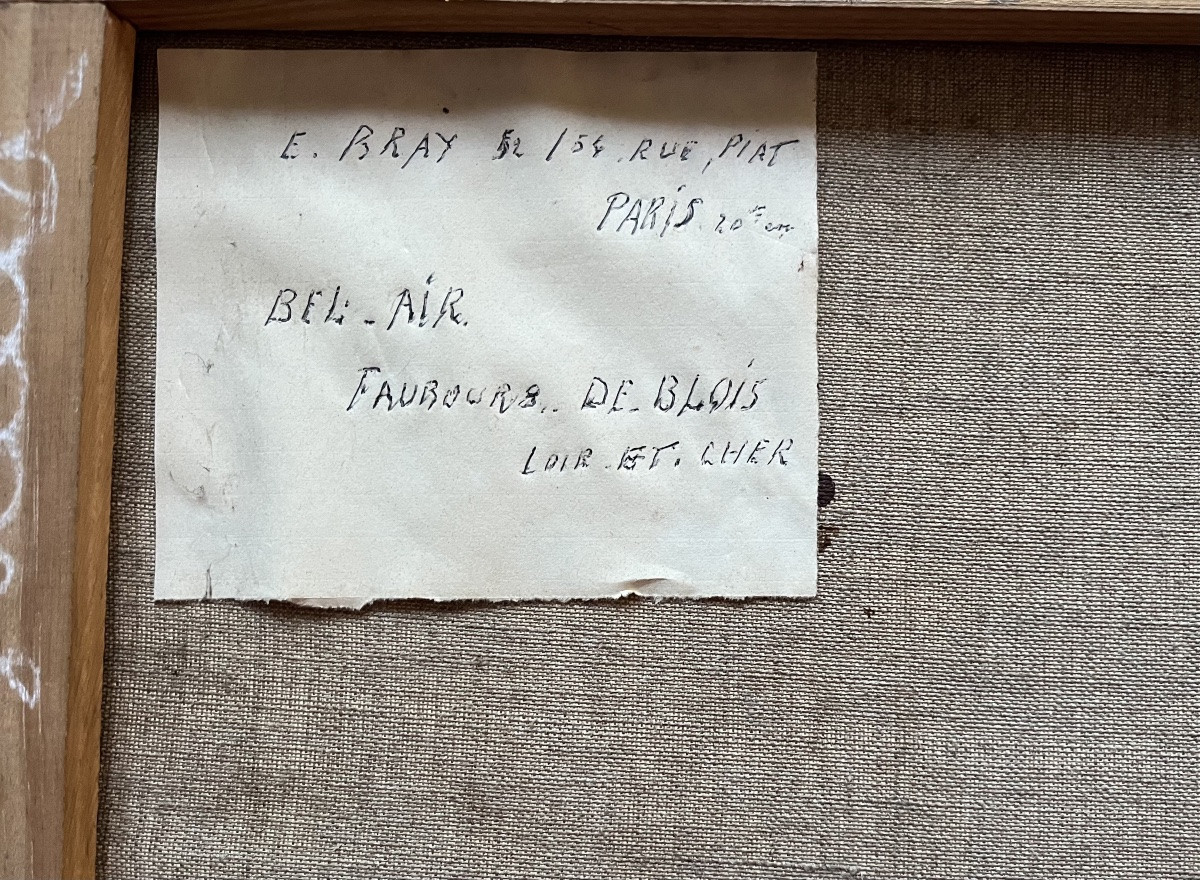 E. BRAY 52 / 54 RUE, PIAT
PARiS. 20e
BEL - AiR.
FAUBOURG.. DE. BLOiS
LOIR. ET. CHER